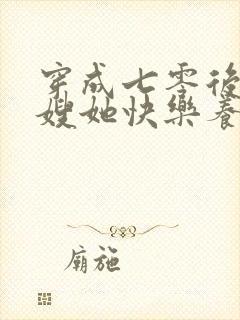 穿成七零後
嫂她快樂養
廟施